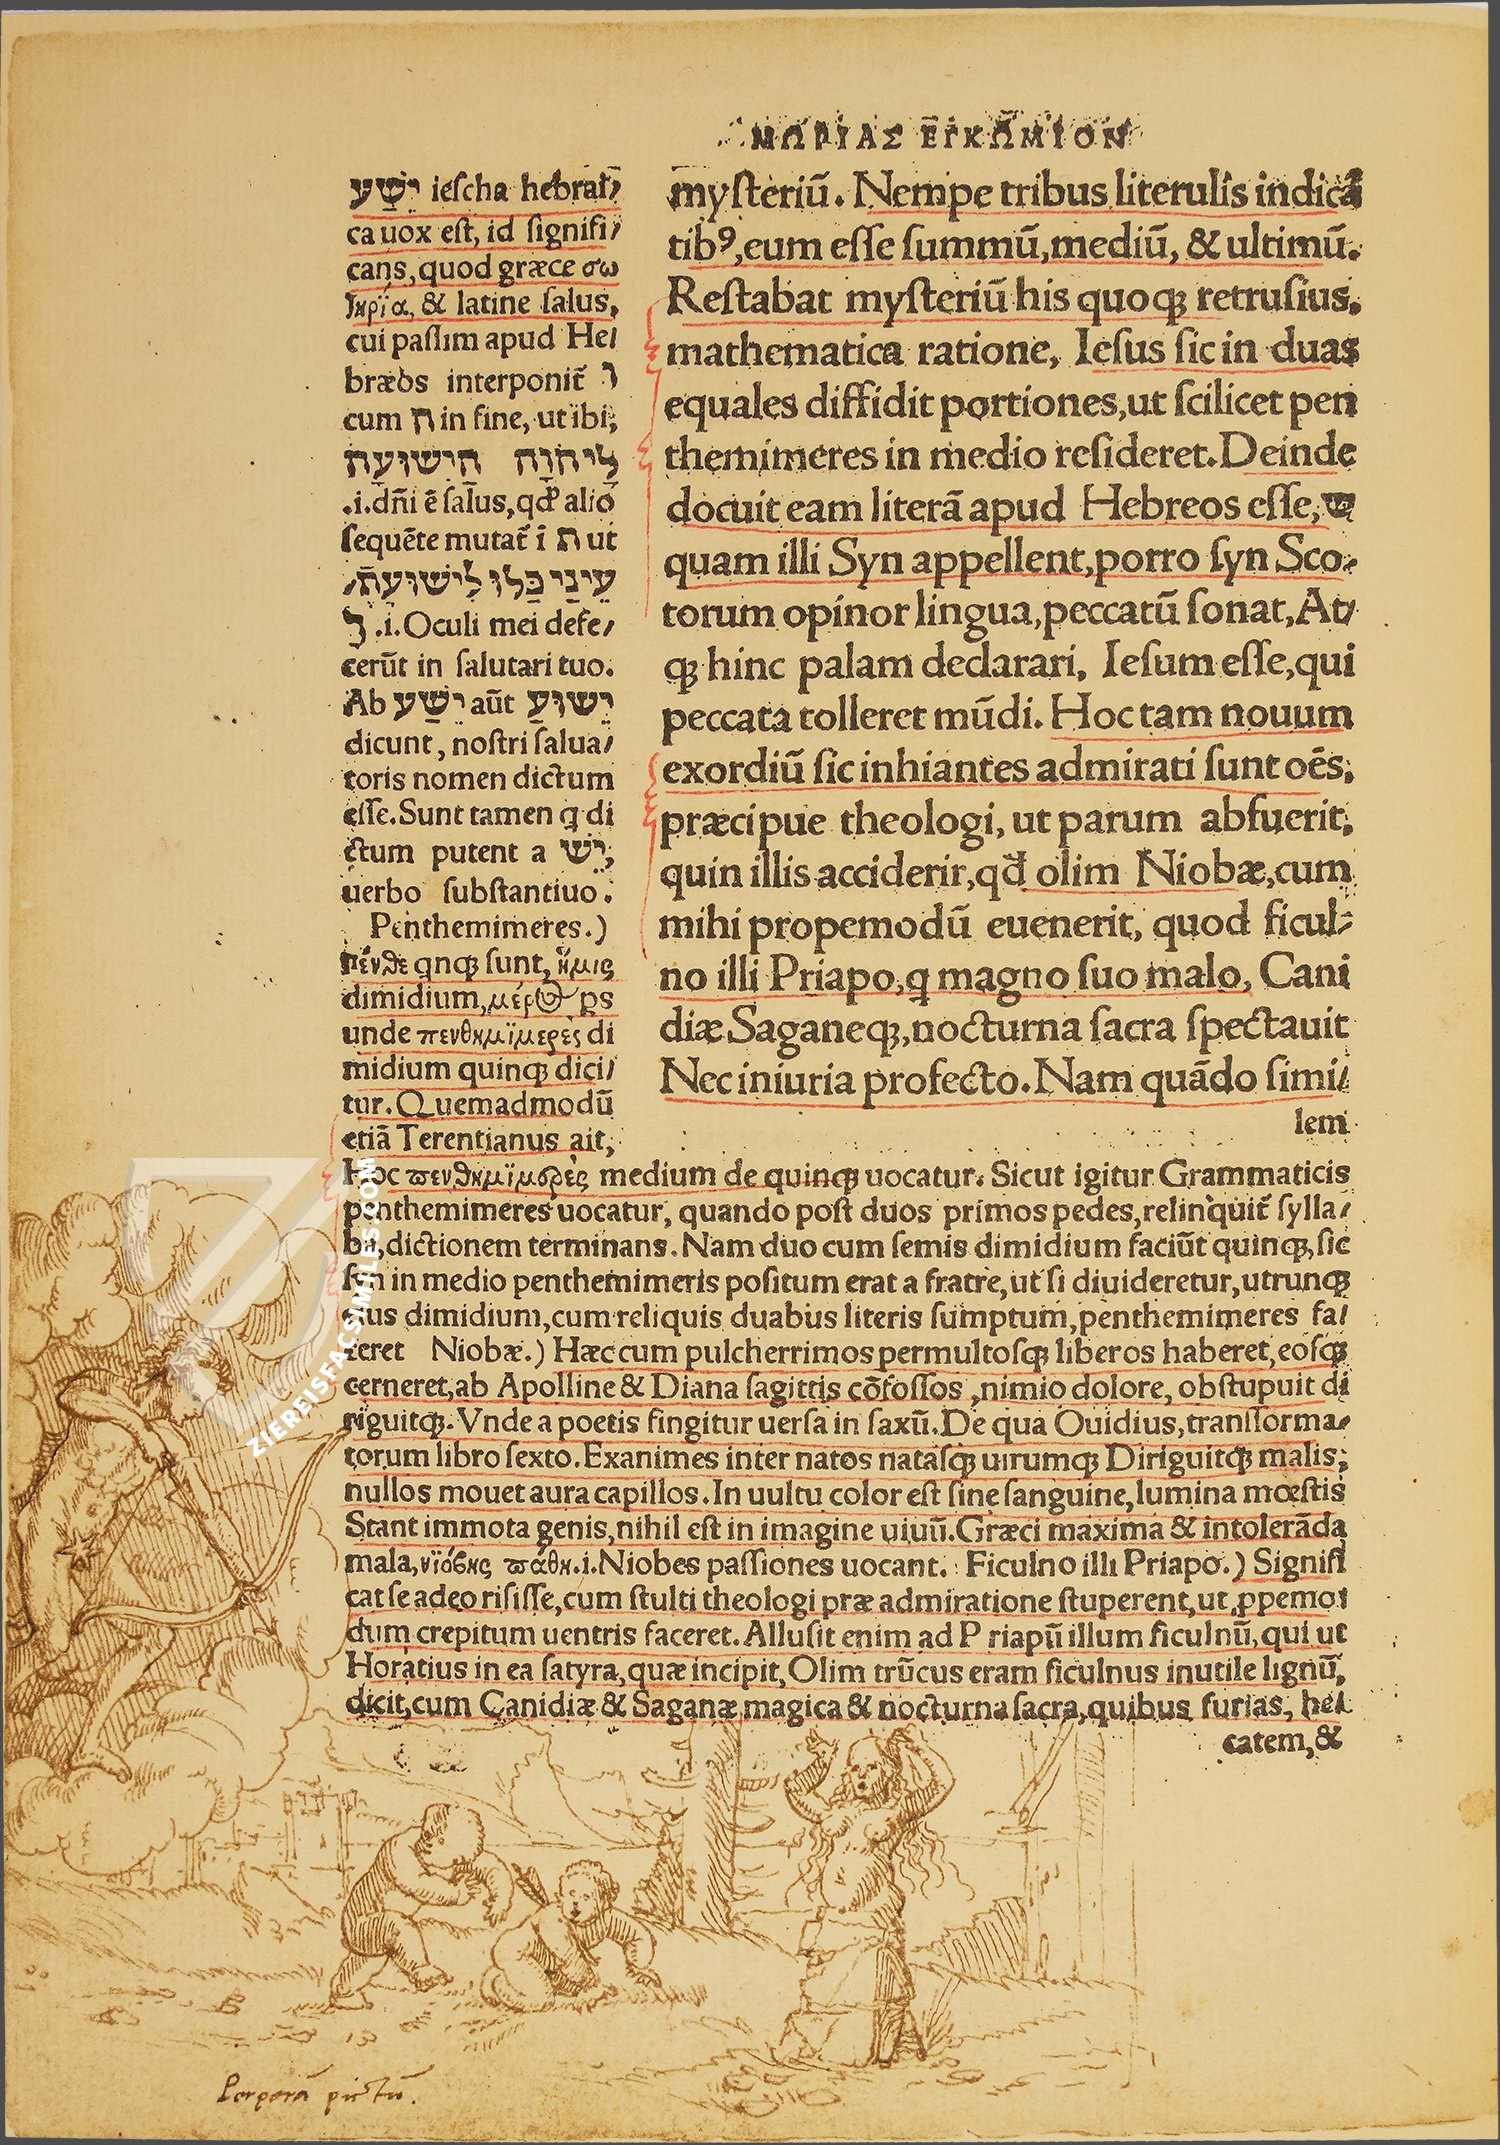 ΜΩΡΙΑΣ ΕΓΚΩΜΙΟΝ
יֵשַׁע iescha hebrai/
ca uox est, id signifi/
cans, quod græce σω
τηρία, & latine salus,
cui passim apud He/
bræos interponit᷑ ו
cum ה in fine, ut ibi,
לַיהוָה הַיְשׁוּעָה
.i. dn̄i ē salus, qd̛ alio
sequēte mutat᷑ ī ת ut
עֵינַי כָּלוּ לִישׁוּעָתֶ/
ך .i. Oculi mei defe/
cerūt in salutari tuo.
Ab יֵשַׁע aūt יֵשׁוּעַ
dicunt, nostri salua/
toris nomen dictum
esse. Sunt tamen q di
ctum putent a יֵשׁ,
uerbo substantiuo.
Penthemimeres.)
πένθε qnqꝫ sunt, ἥμις
dimidium, μέρος ꝑs
unde πενθημϊμερὲς di
midium quinqꝫ dici/
tur. Quemadmodū
etiā Terentianus ait,
mysteriū. Nempe tribus literulis indicā
tibꝰ, eum esse summū, mediū, & ultimū.
Restabat mysteriū his quoqꝫ retrusius,
mathematica ratione, Iesus sic in duas
equales diffidit portiones, ut scilicet pen
themimeres in medio resideret. Deinde
docuit eam literā apud Hebreos esse, שׁ
quam illi Syn appellent, porro syn Sco-
torum opinor lingua, peccatū sonat, At/
qꝫ hinc palam declarari, Iesum esse, qui
peccata tolleret mūdi. Hoc tam nouum
exordiū sic inhiantes admirati sunt oēs,
præcipue theologi, ut parum abfuerit,
quin illis acciderir, qd̛ olim Niobæ, cum
mihi propemodū euenerit, quod ficul-
no illi Priapo, q magno suo malo, Cani
diæ Saganeqꝫ, nocturna sacra spectauit
Nec iniuria profecto. Nam quādo simi/
lem
Hoc πενθημϊμερὲς medium de quinqꝫ uocatur. Sicut igitur Grammaticis
penthemimeres uocatur, quando post duos primos pedes, relinquit᷑ sylla/
ba, dictionem terminans. Nam duo cum semis dimidium faciūt quinqꝫ, sic
syn in medio penthemimeris positum erat a fratre, ut si diuideretur, utrunqꝫ
eius dimidium, cum reliquis duabus literis sumptum, penthemimeres fa/
ceret Niobæ.) Hæc cum pulcherrimos permultosqꝫ liberos haberet, eosqꝫ
cerneret, ab Apolline & Diana sagittis cōfossos, nimio dolore, obstupuit di
riguitqꝫ. Vnde a poetis fingitur uersa in saxū. De qua Ouidius, transforma-
torum libro sexto. Exanimes inter natos natasqꝫ uirumqꝫ Diriguitqꝫ malis,
nullos mouet aura capillos. In uultu color est sine sanguine, lumina mœstis
Stant immota genis, nihil est in imagine uiuū. Græci maxima & intolerāda
mala, νϊόβης πάθη .i. Niobes passiones uocant. Ficulno illi Priapo.) Signifi
cat se adeo risisse, cum stulti theologi præ admiratione stuperent, ut ꝓpemo/
dum crepitum uentris faceret. Allusit enim ad Priapū illum ficulnū, qui ut
Horatius in ea satyra, quæ incipit, Olim trūcus eram ficulnus inutile lignū,
dicit, cum Canidiæ & Saganæ magica & nocturna sacra, quibus furias, he/
catem, &
ZIEREISFACSIMILES.COM
pictū.